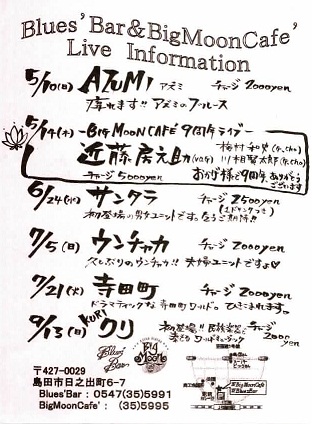 Blues' Bar & BigMoonCafe'
Live Information
5/10(日) AZUMI アズミ チャージ 2000yen
痺れます!! アズミのブルース
5/14(木) -BIG MOON CAFÉ 9周年ライブ-
近藤房之助(vo,g)
チャージ 5000yen おかげ様で9周年、ありがとうございます
6/24(水) サンタラ チャージ 2500yen
(1ドリンクつき)
初登場の男女ユニットです。乞うご期待!!
7/5(日) ウンチャカ チャージ 2000yen
久しぶりのウンチャカ!! 夫婦ユニットですよ♡
7/21(火) 寺田町 チャージ 2000yen
ドラマティックな寺田町ワールド。
9/13(日) KURI クリ チャージ 2000yen
初登場!! 民族楽器で
Blues' Bar
Big Moon
〒427-0029
島田市日之出町6-7
Blues'Bar : 0547(35)5991
BigMoonCafe' : (35)5995